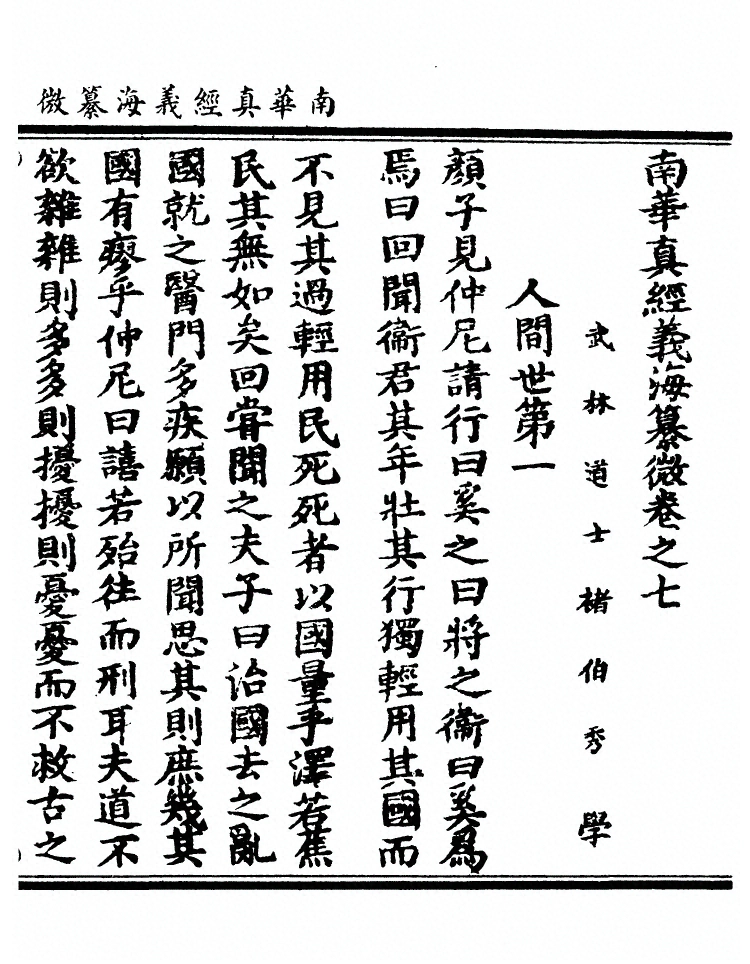 南華真經義海纂微
南華真經義海纂微卷之七
武林道士褚伯秀學
人間世第一
顏子見仲尼請行曰奚之曰將之衞曰奚爲
焉曰回聞衞君其年壯其行獨輕用其國而
不見其過輕用民死死者以國量乎澤若蕉
民其無如矣回甞聞之夫子曰治國去之亂
國就之醫門多疾願以所聞思其則庶幾其
國有瘳乎仲尼曰譆若殆往而刑耳夫道不
欲雜雜則多多則擾擾則憂憂而不救古之